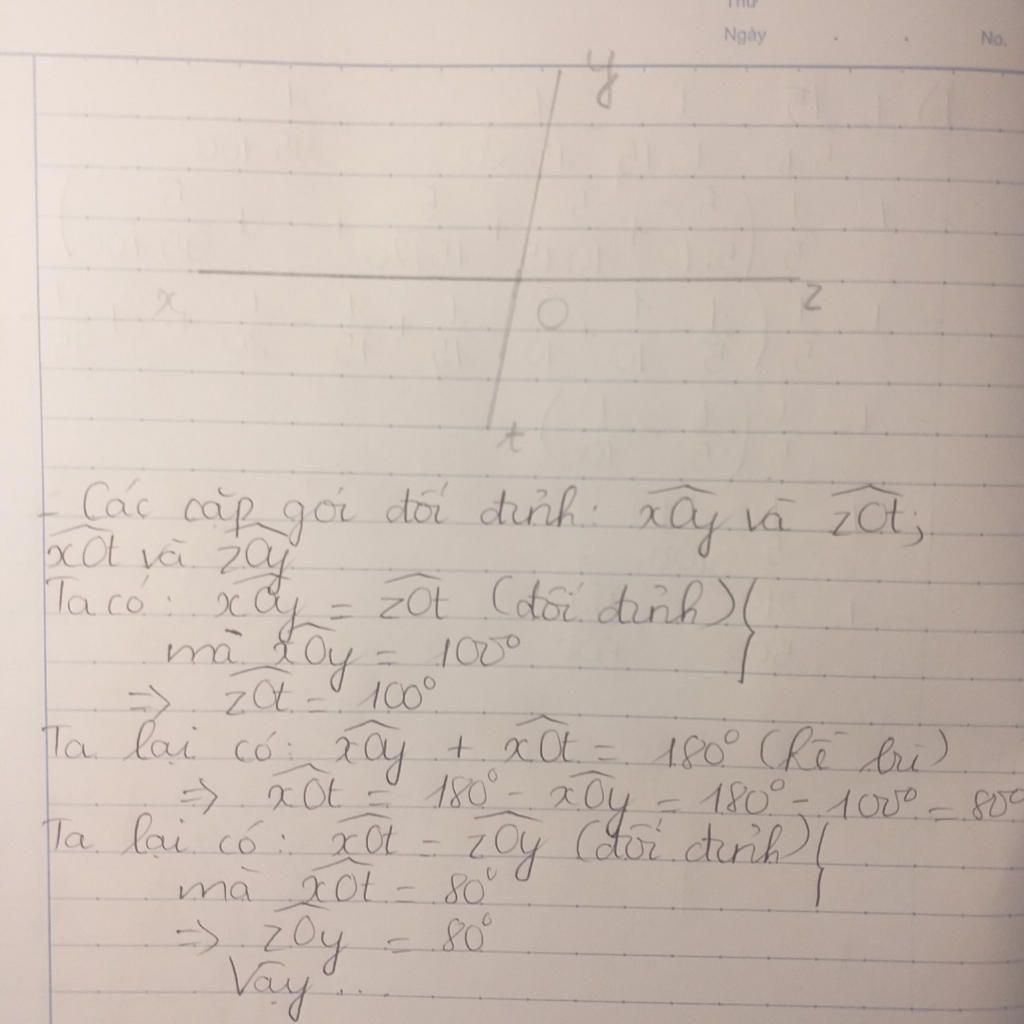 Thứ
Ngày . . No.
y
x
O
z
t
- Các cặp gói đối đỉnh: xOy và zOt;
xOt và zOy
Ta có: xOy = zOt (đối đỉnh)
mà xOy = 100°
=> zOt = 100°
Ta lại có: xOy + xOt = 180° (kề bù)
=> xOt = 180° - xOy = 180° - 100° = 80°
Ta lại có: xOt = zOy (đối đỉnh)
mà xOt = 80°
=> zOy = 80°
Vậy ...